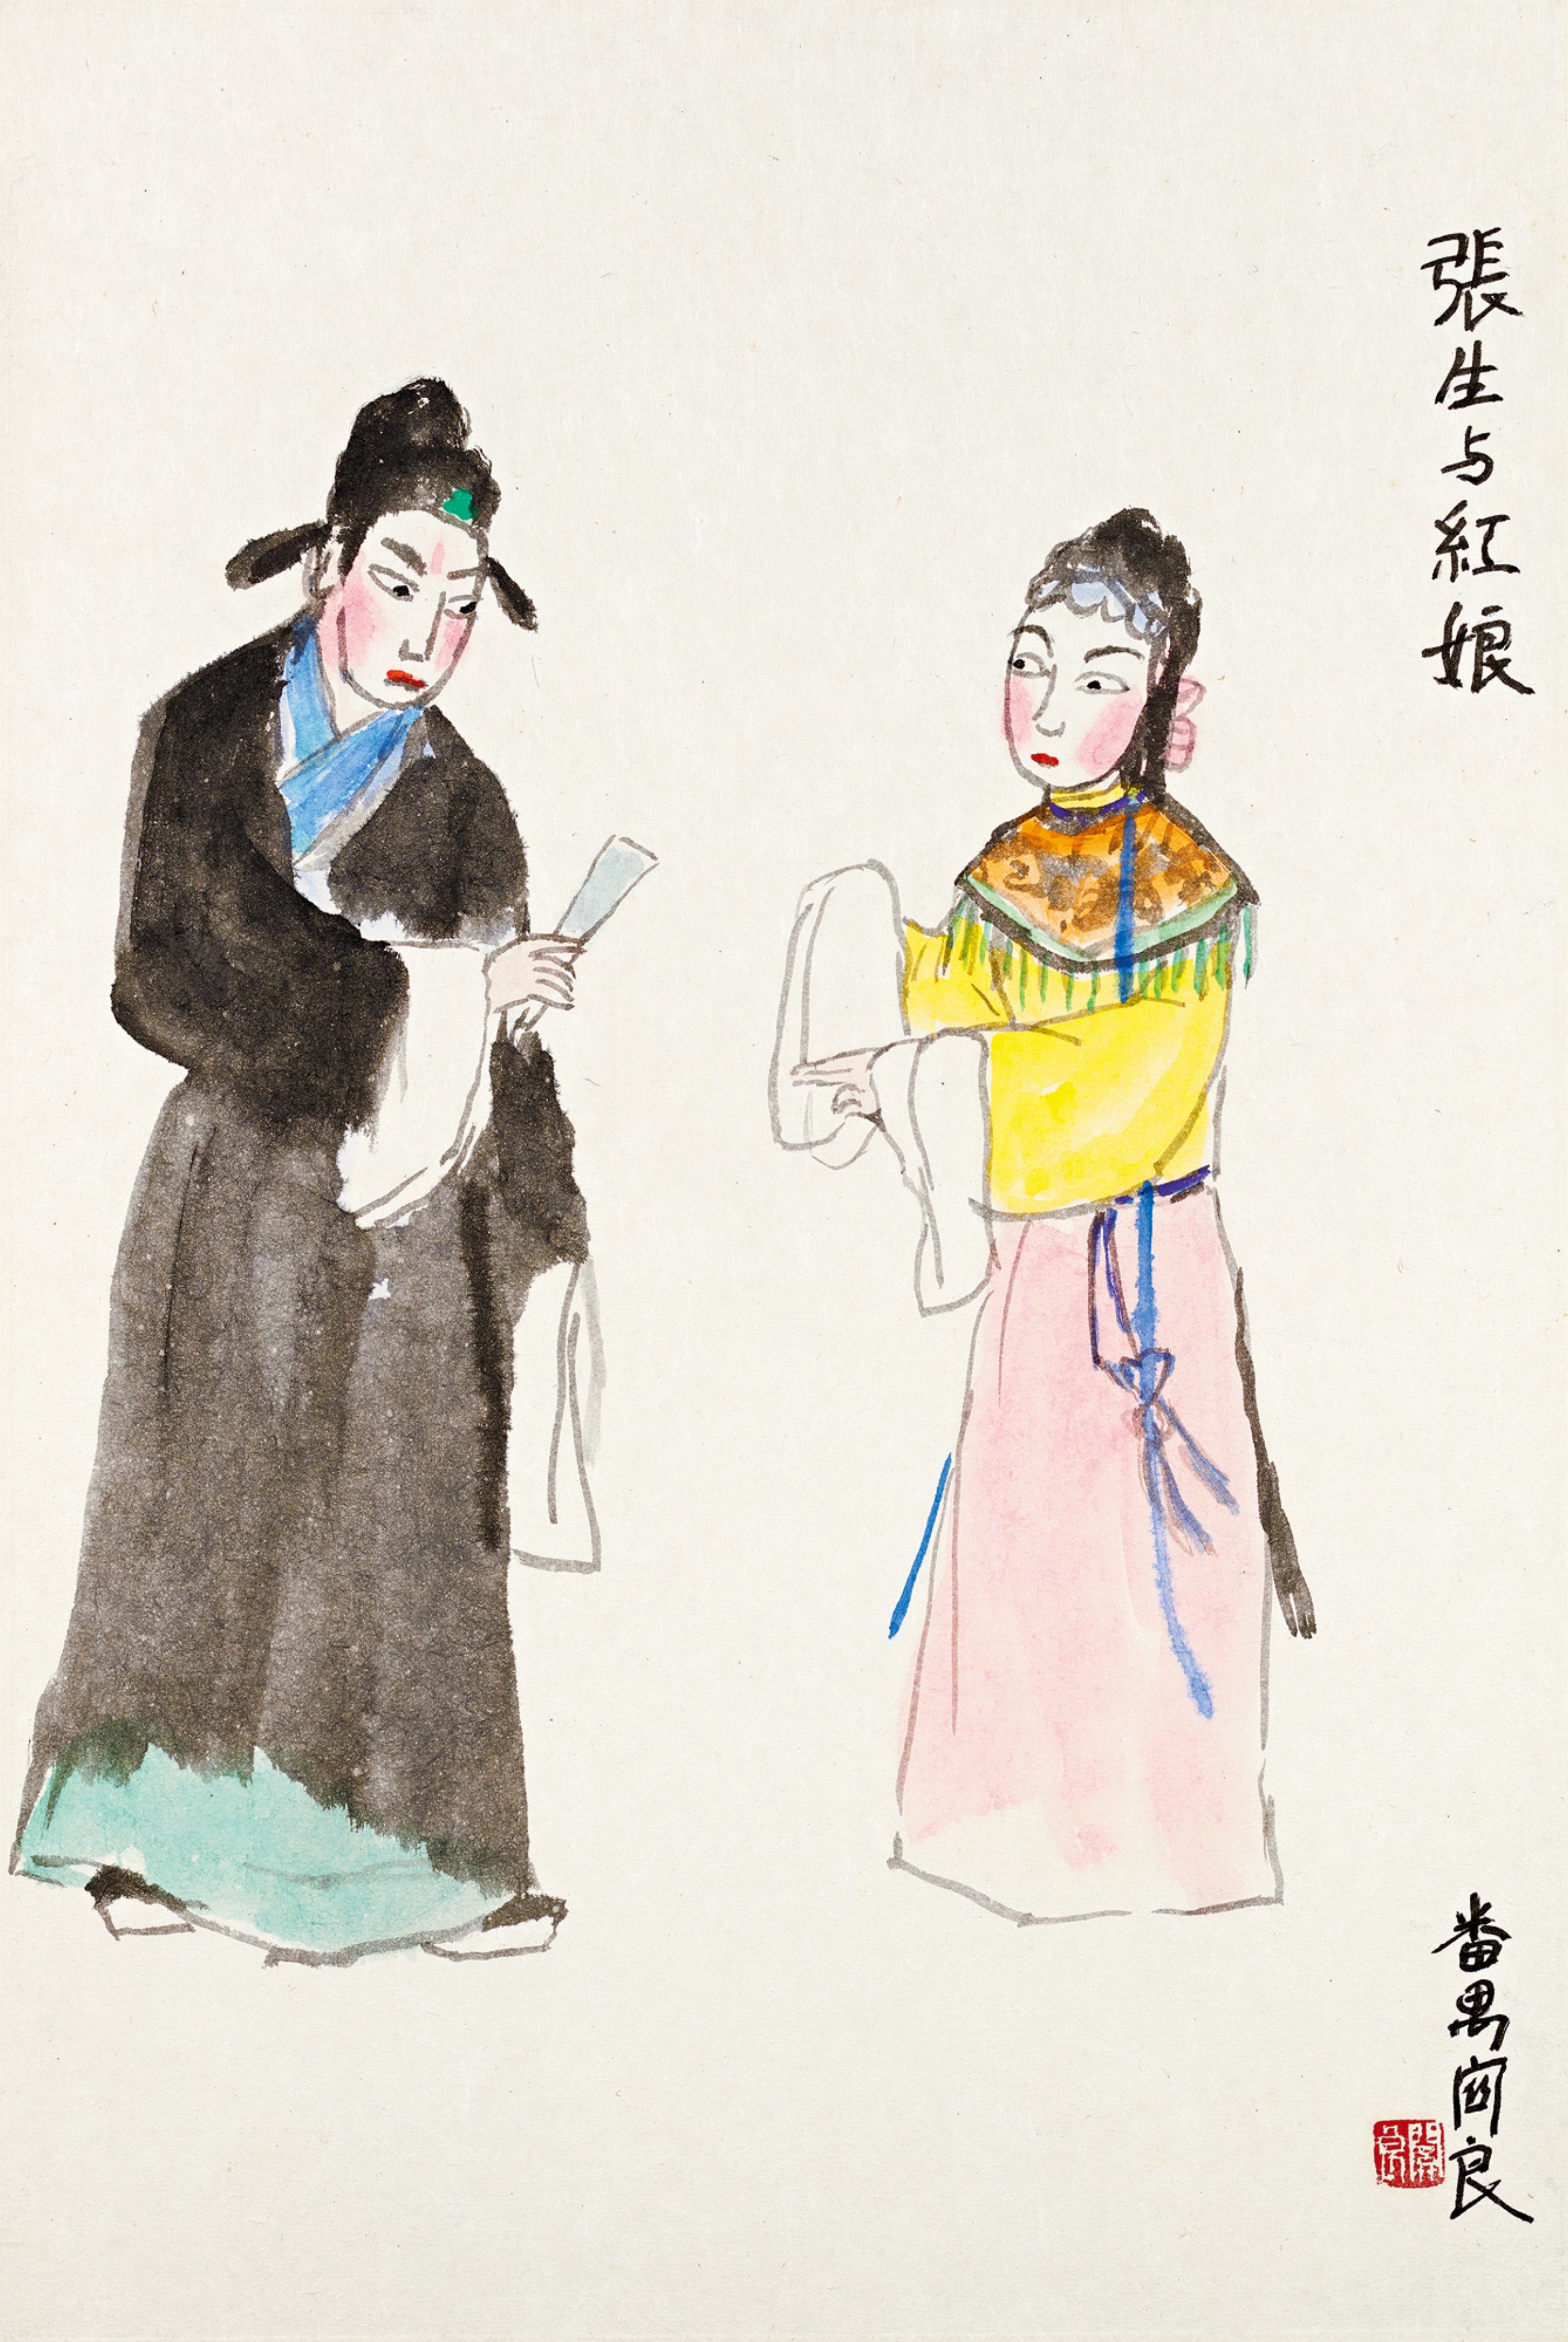 張生与紅娘
番禺関良
関良